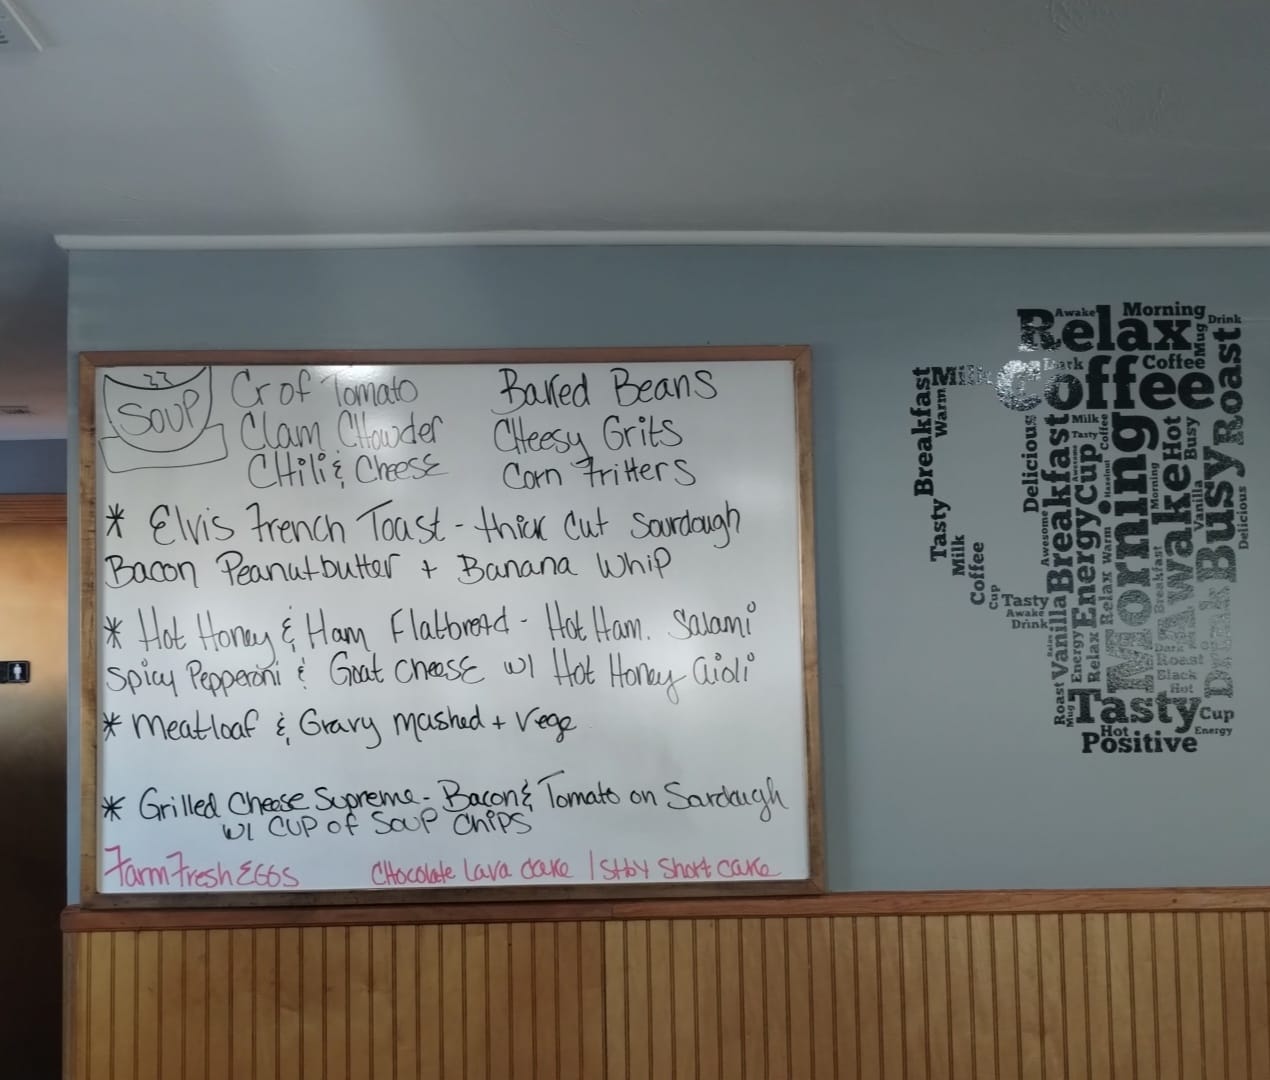 SOUP
Cr of Tomato
Clam CHowder
CHili & Cheese
Baked Beans
CHeesy Grits
Corn Fritters
* Elvis French Toast - thick cut Sourdough
Bacon Peanutbutter + Banana Whip
* Hot Honey & Ham Flatbread - Hot Ham. Salami
Spicy Pepperoni & Goat cheese w/ Hot Honey aioli
* Meatloaf & Gravy mashed + Vege
* Grilled Cheese Supreme - Bacon & Tomato on Sardough
w/ CUP of SOUP Chips
Farm Fresh EGGS
CHocolate lava cake / Stby Short cake
Relax
Awake
Morning
Drink
Mug
Milk
Dark
Coffee
Coffee
Roast
Breakfast
Warm
Tasty
Milk
Coffee
Cup
Tasty
Awake
Drink
Delicious
Awesome
Breakfast
Milk
Tasty
Coffee
Awesome
Hazelnut
Energy
Cup
Warm
Relax
Morning
Hot
Busy
Morning
Vanilla
Awake
Busy
Delicious
Breakfast
Vanilla
Energy
Relax
Drink
Dark
Roast
Black
Hot
Roast
Mug
Tasty
Cup
Hot
Energy
Positive